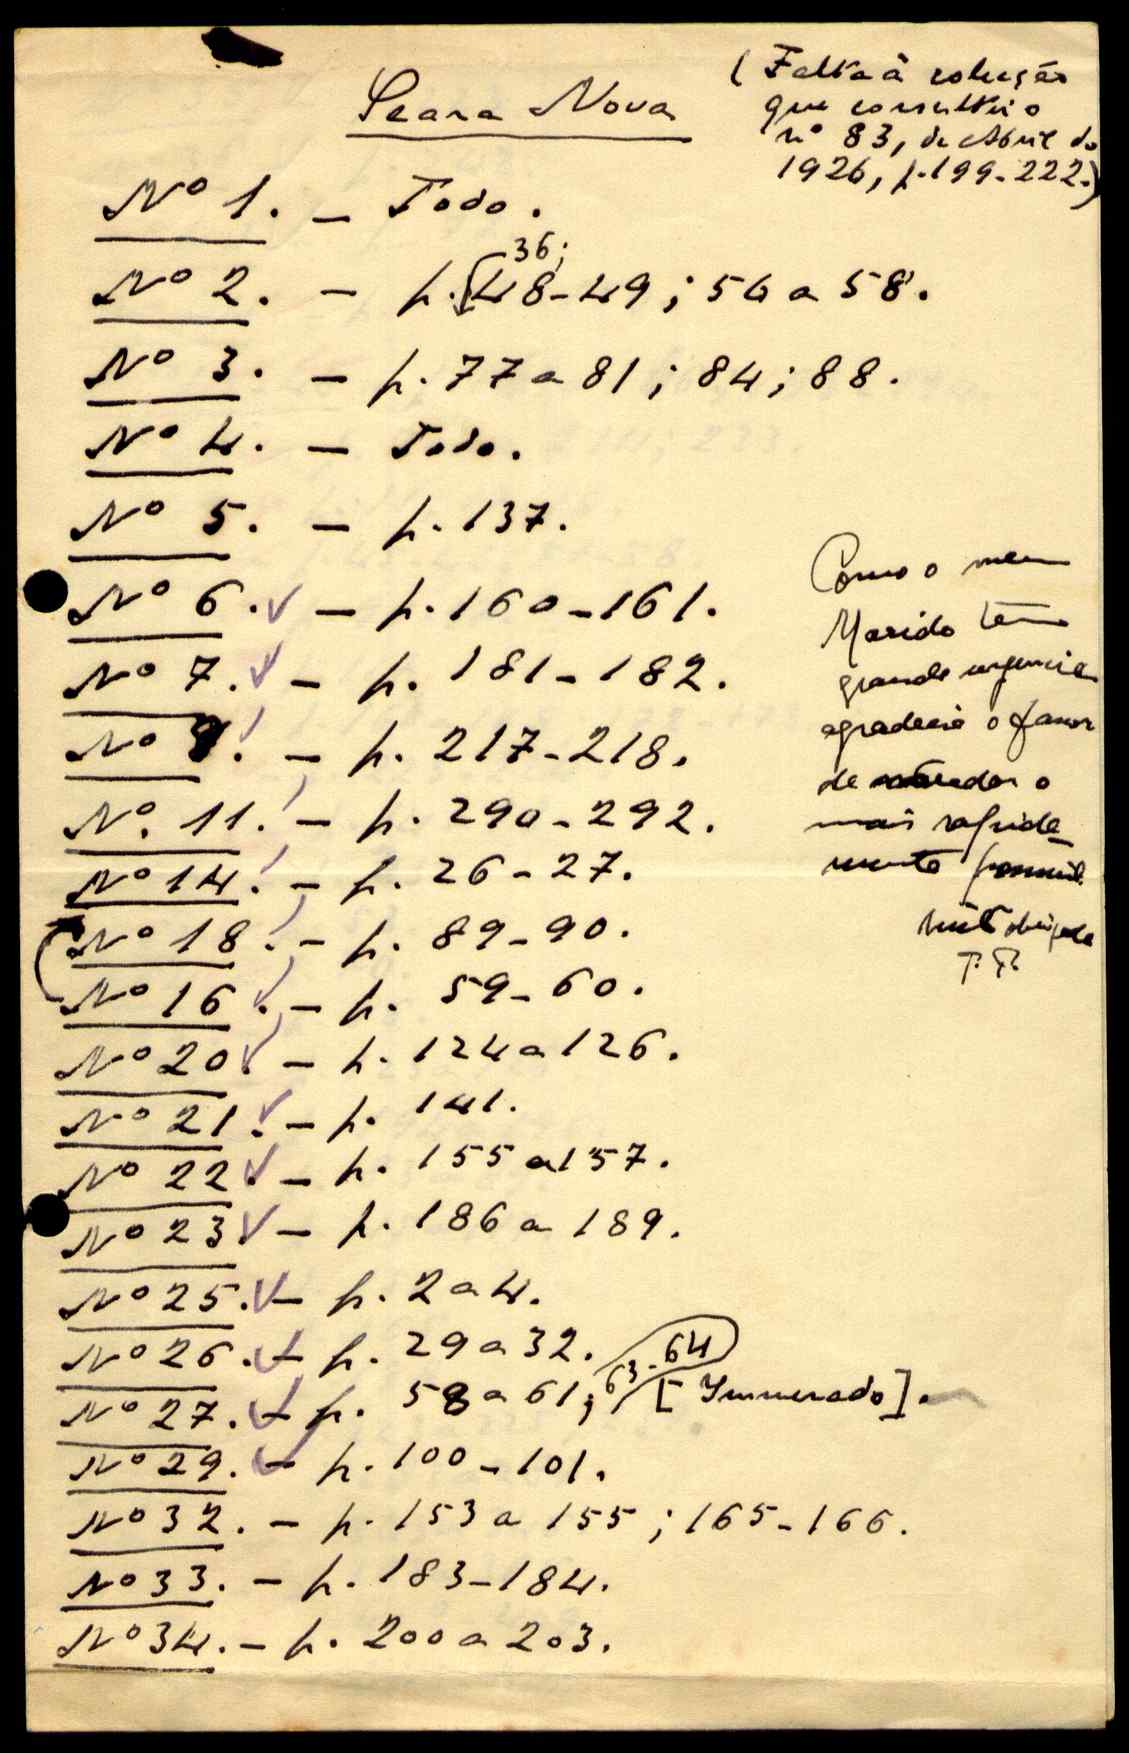 Seara Nova
(Falta à colecção
que consultei o
nº 83, de Abril de
1926, p. 199-222.)
Nº 1. — Todo.
36;
Nº 2. — p. 48-49; 56 a 58.
Nº 3. — p. 77 a 81; 84; 88.
Nº 4. — Todo.
Nº 5. — p. 137.
Nº 6. — p. 160-161.
Nº 7. — p. 181-182.
Nº 9. — p. 217-218.
Nº. 11. — p. 290-292.
Nº 14. — p. 26-27.
Nº 18. — p. 89-90.
Nº 16. — p. 59-60.
Nº 20. — p. 124 a 126.
Nº 21. — p. 141.
Nº 22. — p. 155 a 157.
Nº 23 — p. 186 a 189.
Nº 25. — p. 2 a 4.
Nº 26. — p. 29 a 32.
Nº 27. — p. 58 a 61; 63-64 [Inumerado].
Nº 29. — p. 100-101.
Nº 32. — p. 153 a 155; 165-166.
Nº 33. — p. 183-184.
Nº 34. — p. 200 a 203.
Como o meu
Marido tem
grande urgencia
agradecia o favor
de mandar o
mais rapida-
mente possivel
Muito obrigada